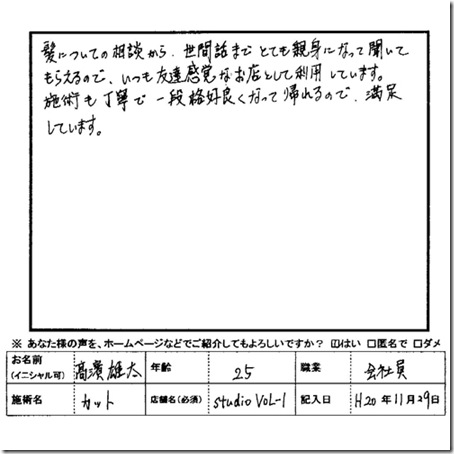 髪についての相談から、世間話まで とても親身になって聞いて
もらえるので、いつも友達感覚なお店として利用しています。
施術も丁寧で一段格好良くなって帰れるので、満足
しています。
※ あなた様の声を、ホームページなどでご紹介してもよろしいですか? ☑はい □匿名で □ダメ
お名前(イニシャル可) 高濱雄太 年齢 25 職業 会社員
施術名 カット 店舗名(必須) studio VOL-1 記入日 H20年11月29日